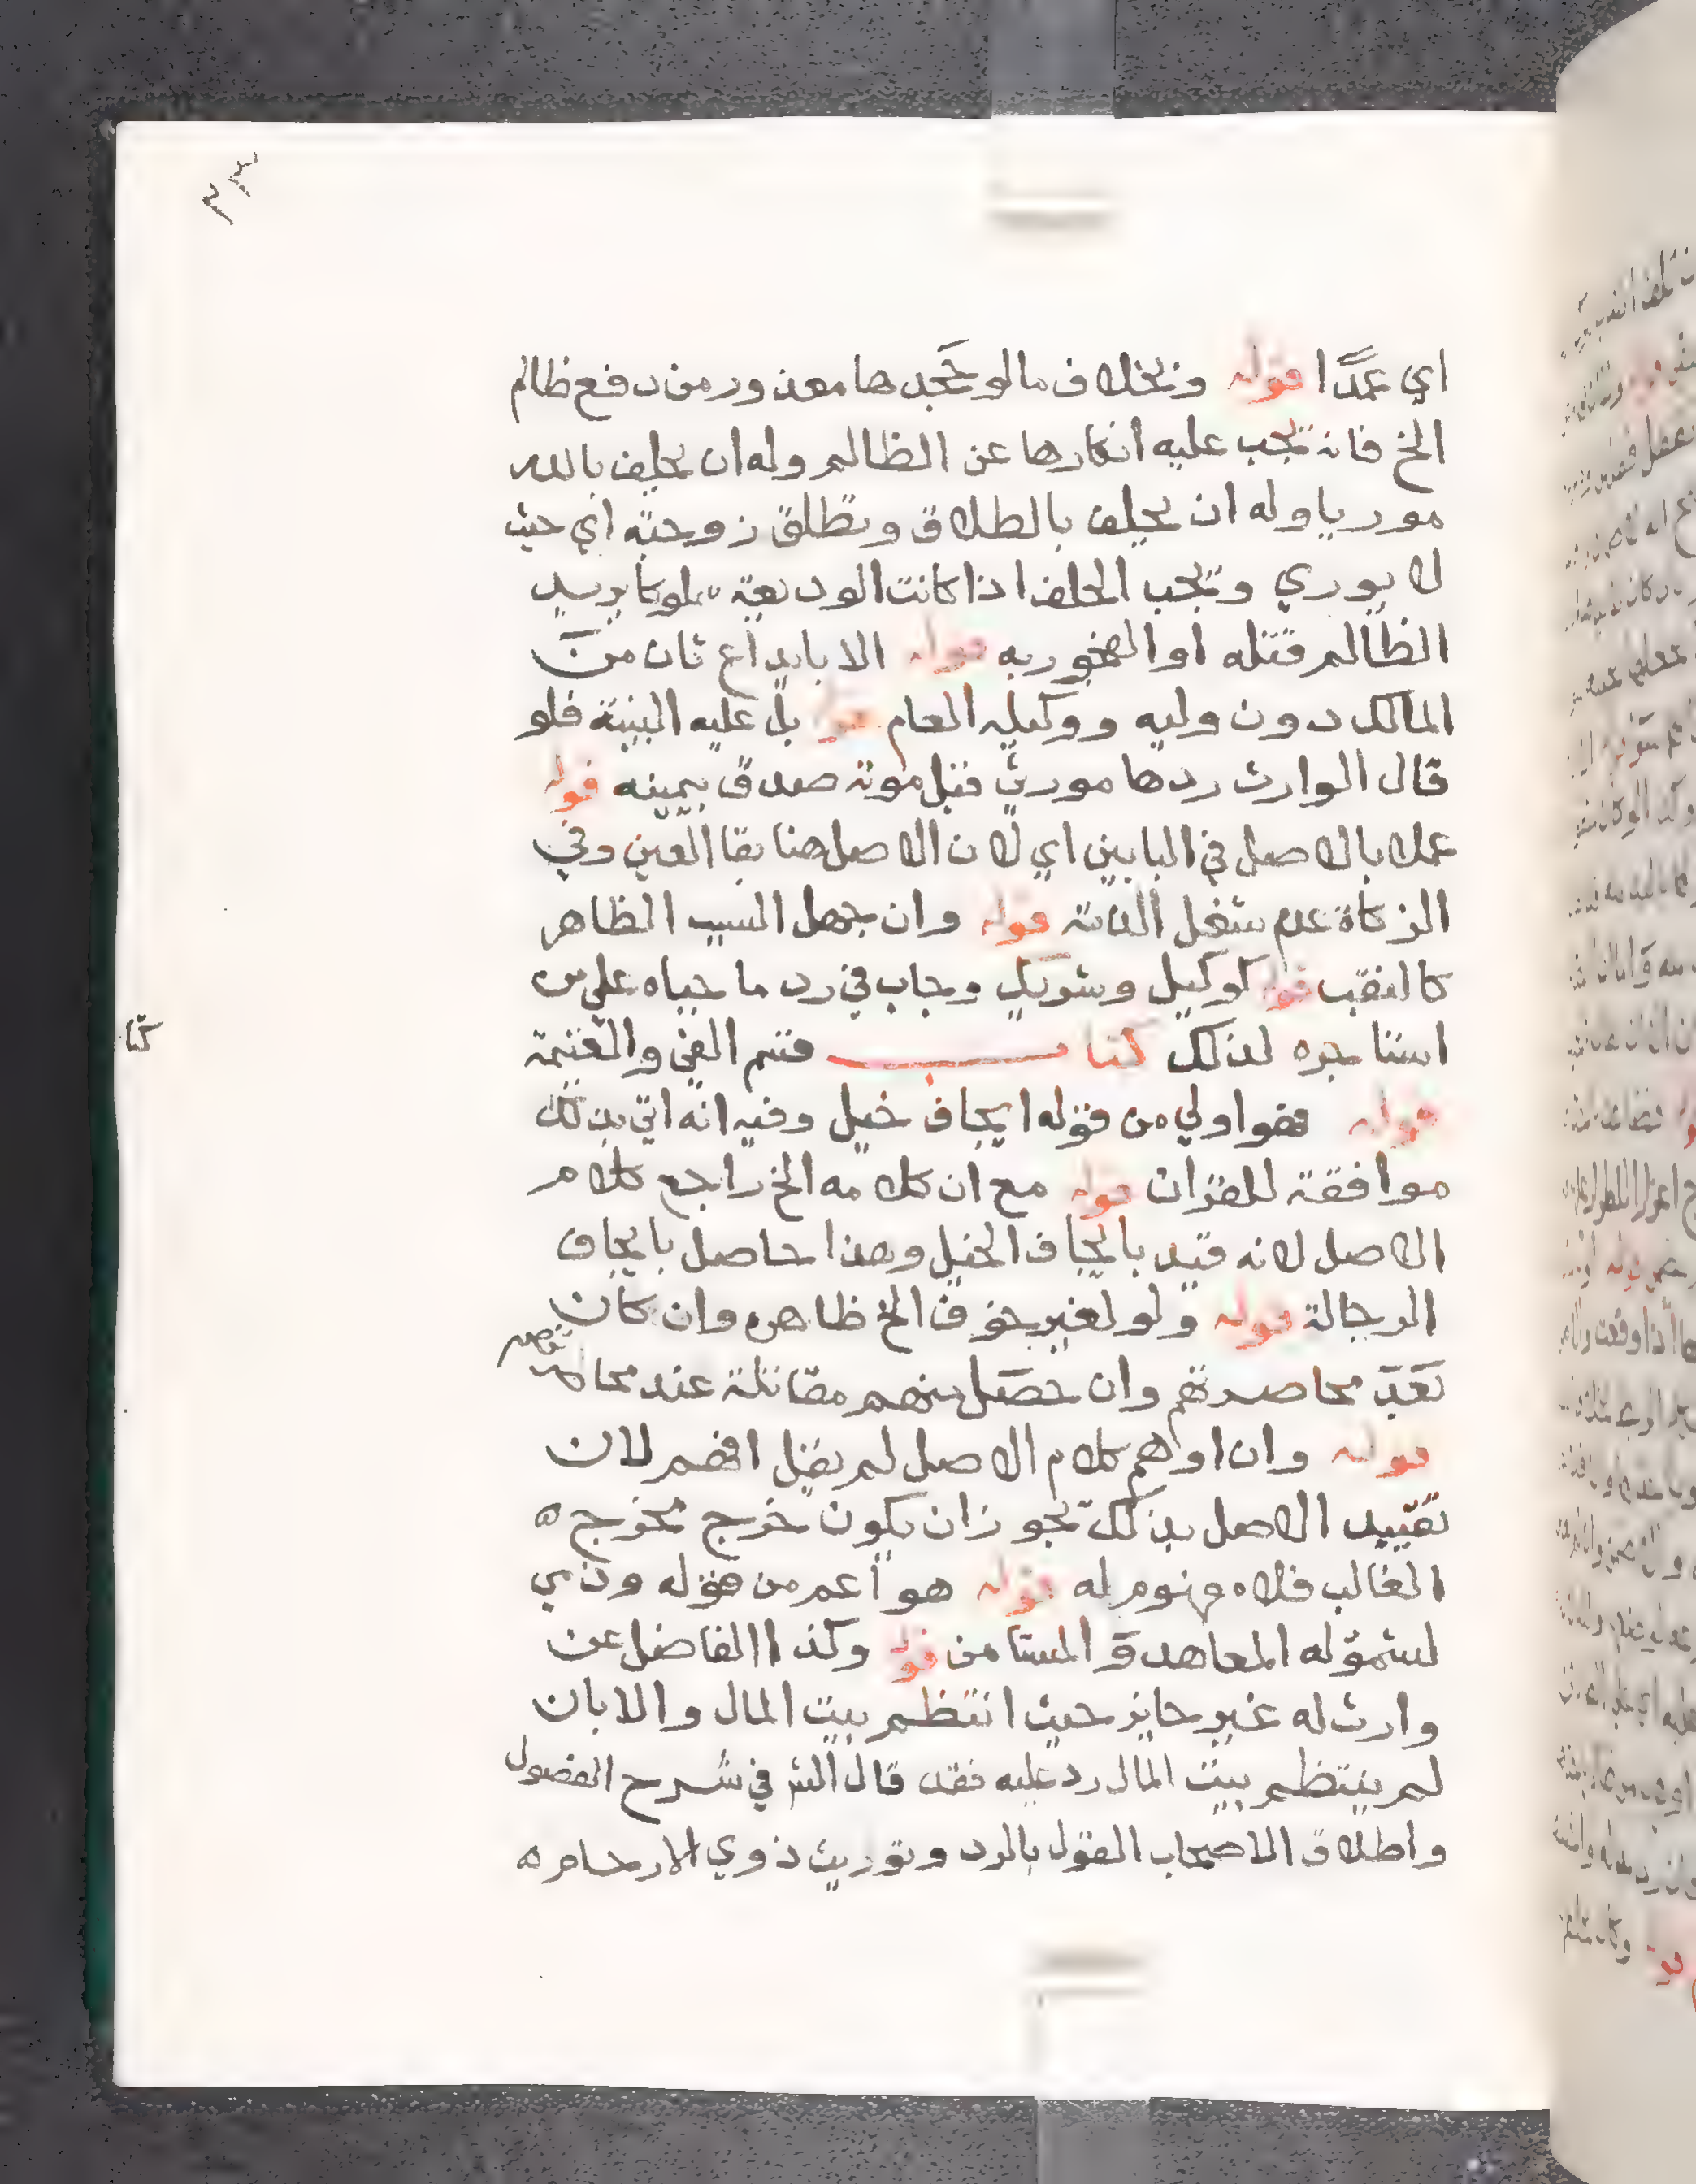 اي عمدًا قوله وبخلاف ما لو جحدها معذور من دفع ظالم
الخ فانه يجب عليه انكارها عن الظالم وله ان يحلف بالله
موريا وله ان يحلف بالطلاق وتطلق زوجته اي حيث
لا يوري ويجب الحلف اذا كانت الوديعة مملوكا يريد
الظالم قتله او الفجور به قوله الا بايداع ثان من
المالك دون وليه ووكيله العام قوله بل عليه البينة فلو
قال الوارث ردها مورثي قبل موته صدق بيمينه قوله
عملا بالاصل في البابين اي لان الاصل هنا بقا العين وفي
الزكاة عدم شغل الذمة قوله وان جهل السبب الظاهر
كالنقب قوله كوكيل وشريك وجاب في رد ما جباه علي من
استاجره لذلك كتاب قسم الفي والغنيمة
قوله فهو اولي من قوله ايجاف خيل وفيه انه اتي بذلك
موافقة للقران قوله مع ان كلامه الخ راجع كلام
الاصل لانه قيد بايجاف الخيل وهذا حاصل بايجاف
الرجالة قوله ولو لغير خوف الخ ظاهره وان كان
بعد محاصرتهم وان حصل منهم مقاتلة عند محاصرتهم
قوله وان اوهم كلام الاصل لم يقل افهم لان
تقييد الاصل بذلك يجوز ان يكون خرج مخرج ه
الغالب فلا مفهوم له قوله هو اعم من قوله وذمي
لشموله المعاهد والمستامن قوله وكذا الفاضل عن
وارث له غير حايز حيث انتظم بيت المال والا بان
لم ينتظم بيت المال رد عليه فقد قال الش في شرح الفصول
واطلاق الاصحاب القول بالرد وتوريث ذوي الارحام ه
كتا